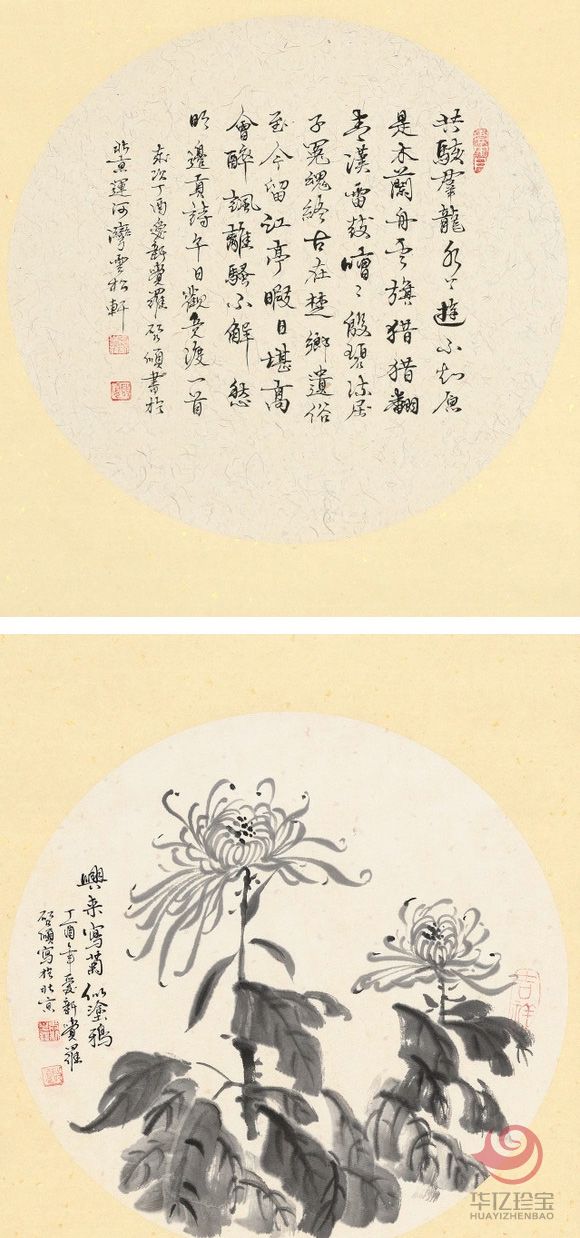 共駭羣龍水上遊不知原
是木蘭舟云旗猎猎翻
青漢雷鼓嘈〻殷碧流屈
子冤魂終古在楚鄉遺俗
至今留江亭暇日堪高
會醉諷離騷不解愁
明邊貢詩午日觀竞渡一首
歲次丁酉愛新覺羅啟書於
北京運河灣雲松軒
興来寫菊似塗鴉
丁酉年愛新覺羅
啟寫於北京
吉祥
华亿珍宝
HUAYIZHENBAO